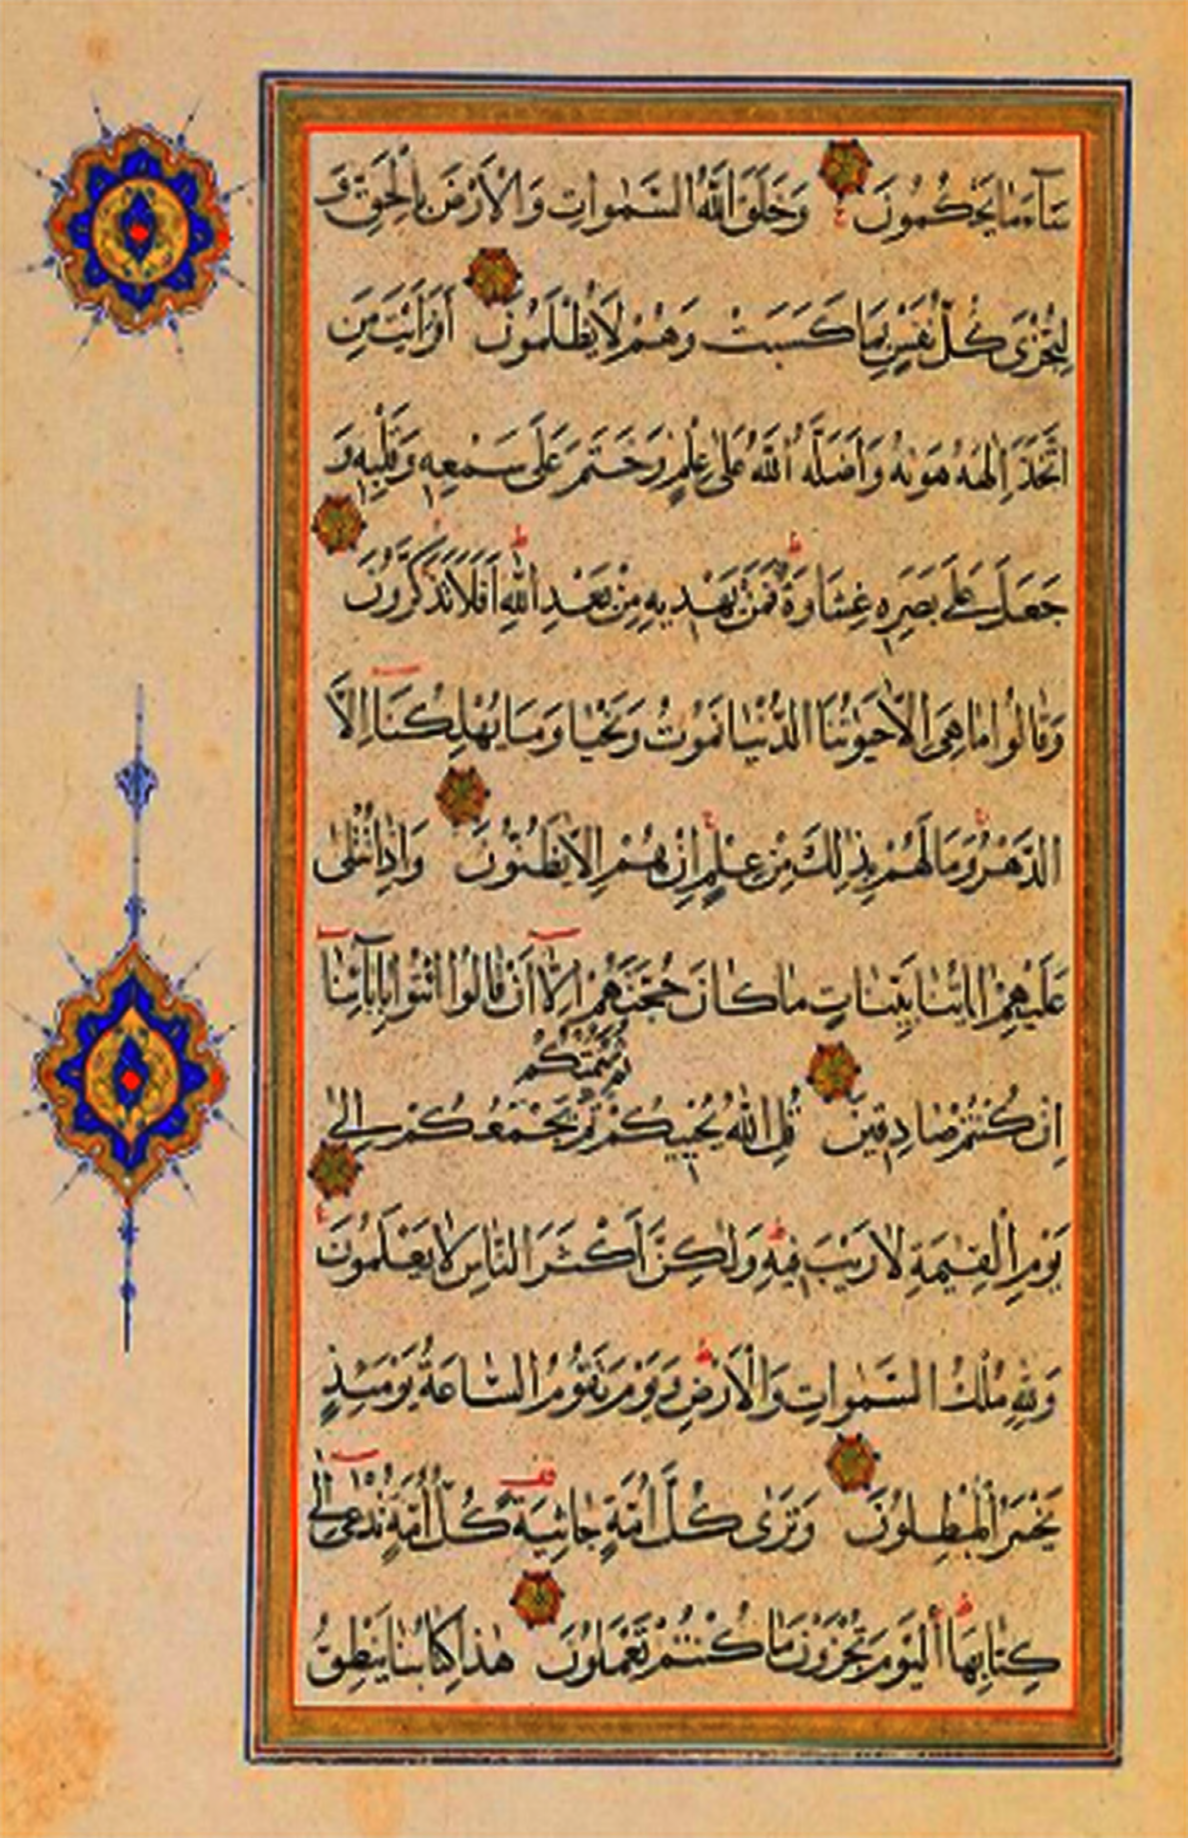 سَآءَ مَا يَحْكُمُونَ وَخَلَقَ اللّٰهُ السَّمٰوَاتِ وَالْاَرْضَ بِالْحَقِّ وَ
لِتُجْزٰى كُلُّ نَفْسٍ بِمَا كَسَبَتْ وَهُمْ لَا يُظْلَمُونَ اَفَرَاَيْتَ مَنِ
اتَّخَذَ اِلٰهَهُ هَوٰيهُ وَاَضَلَّهُ اللّٰهُ عَلٰى عِلْمٍ وَخَتَمَ عَلٰى سَمْعِهِ وَقَلْبِهِ وَ
جَعَلَ عَلٰى بَصَرِهِ غِشَاوَةً فَمَنْ يَهْدِيهِ مِنْ بَعْدِ اللّٰهِ اَفَلَا تَذَكَّرُونَ
وَقَالُوا مَا هِيَ اِلَّا حَيٰوتُنَا الدُّنْيَا نَمُوتُ وَنَحْيَا وَمَا يُهْلِكُنَا اِلَّا
الدَّهْرُ وَمَا لَهُمْ بِذٰلِكَ مِنْ عِلْمٍ اِنْ هُمْ اِلَّا يَظُنُّونَ وَاِذَا تُتْلٰى
عَلَيْهِمْ اٰيَاتُنَا بَيِّنَاتٍ مَا كَانَ حُجَّتَهُمْ اِلَّا اَنْ قَالُوا ائْتُوا بِاٰبَآئِنَا
ثُمَّ يُمِيتُكُمْ
اِنْ كُنْتُمْ صَادِقِينَ قُلِ اللّٰهُ يُحْيِيكُمْ ثُمَّ يَجْمَعُكُمْ اِلٰى
يَوْمِ الْقِيٰمَةِ لَا رَيْبَ فِيهِ وَلٰكِنَّ اَكْثَرَ النَّاسِ لَا يَعْلَمُونَ
وَلِلّٰهِ مُلْكُ السَّمٰوَاتِ وَالْاَرْضِ وَيَوْمَ تَقُومُ السَّاعَةُ يَوْمَئِذٍ
يَخْسَرُ الْمُبْطِلُونَ وَتَرٰى كُلَّ اُمَّةٍ جَاثِيَةً كُلُّ اُمَّةٍ تُدْعٰى اِلٰى
كِتَابِهَا اَلْيَوْمَ تُجْزَوْنَ مَا كُنْتُمْ تَعْمَلُونَ هٰذَا كِتَابُنَا يَنْطِقُ